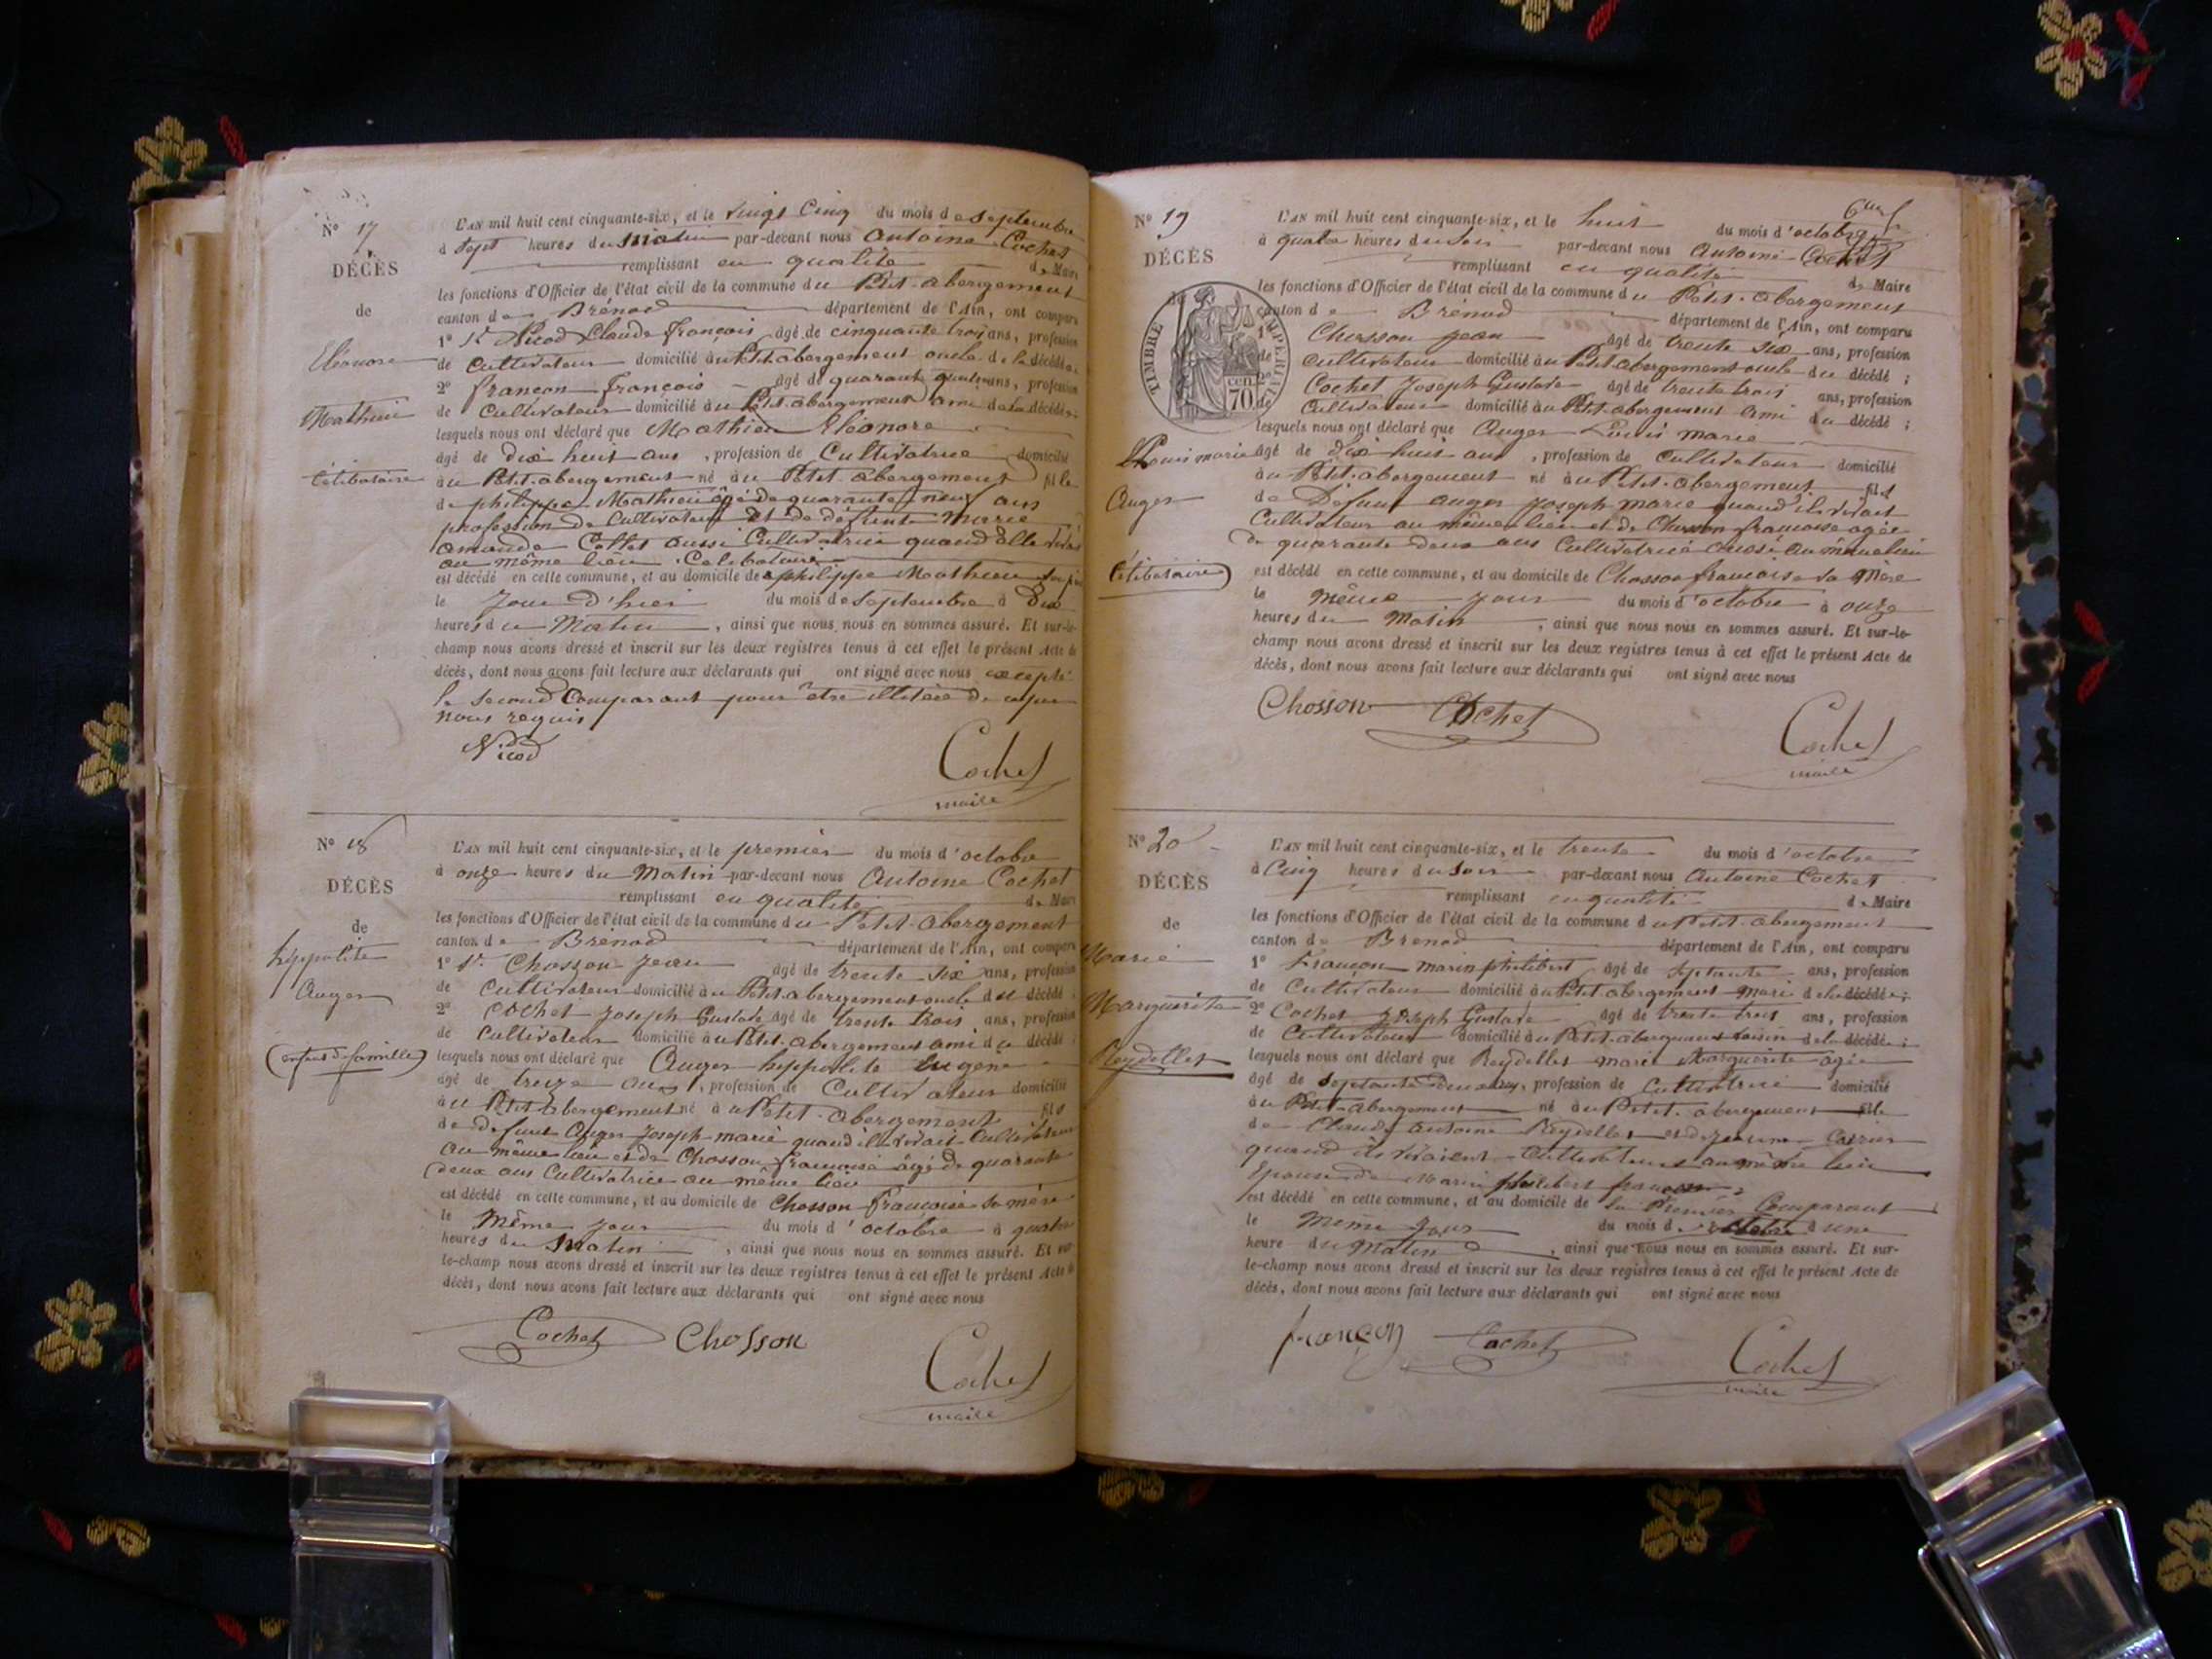 N° 17
DÉCÈS
de
Eléonore
Mathieu
Célibataire
L'AN mil huit cent cinquante-six, et le vingt Cinq du mois de septembre
à Sept heures du Matin par-devant nous Antoine Cochet
remplissant en qualité de Maire
les fonctions d'Officier de l'état civil de la commune du Petit-abergement
canton de Brénod département de l'Ain, ont comparu
1° Sr Nicod Claude françois, âgé de cinquante trois ans, profession
de Cultivateur domicilié au Petit abergement oncle de la décédée
2° françon françois âgé de quarante quatre ans, profession
de Cultivateur domicilié au Petit-abergement ami de la décédée
lesquels nous ont déclaré que Mathieu Eléonore
âgé de dix huit ans, profession de Cultivatrice domicilié
au Petit-abergement né au Petit abergement fille
de philippe Mathieu âgé de quarante neuf ans
profession de Cultivateur et de défunte Marie
amande Collet aussi Cultivatrice quand elle vivait
au même lieu. Celibataire
est décédé en cette commune, et au domicile de philippe Mathieu son père
le Jour d'hier du mois de Septembre à Dix
heures du Matin, ainsi que nous nous en sommes assuré. Et sur-le-
champ nous avons dressé et inscrit sur les deux registres tenus à cet effet le présent Acte de
décès, dont nous avons fait lecture aux déclarants qui ont signé avec nous excepté
le Second Comparant pour être illitéré de ce par
nous requis
Nicod
Cochet
maire
N° 18
DÉCÈS
de
hippolite
Auger
(enfant de famille)
L'AN mil huit cent cinquante-six, et le premier du mois d'octobre
à onze heures du Matin par-devant nous Antoine Cochet
remplissant en qualité de Maire
les fonctions d'Officier de l'état civil de la commune du Petit-abergement
canton de Brénod département de l'Ain, ont comparu
1° Sr. Chosson Jean âgé de trente six ans, profession
de Cultivateur domicilié au Petit-abergement oncle du décédé
2° Cochet Joseph Gustave âgé de trente trois ans, profession
de Cultivateur domicilié au Petit-abergement ami du décédé
lesquels nous ont déclaré que Auger hippolite Eugène
âgé de treize ans, profession de Cultivateur domicilié
au Petit abergement né au Petit-abergement fils
de défunt Auger Joseph-marie quand il vivait Cultivateur
au même lieu et de Chosson françoise âgé de quarante
deux ans Cultivatrice au même lieu
est décédé en cette commune, et au domicile de Chosson françoise sa mère
le Même jour du mois d'octobre à quatre
heures du Matin, ainsi que nous nous en sommes assuré. Et sur-
le-champ nous avons dressé et inscrit sur les deux registres tenus à cet effet le présent Acte de
décès, dont nous avons fait lecture aux déclarants qui ont signé avec nous
Cochet Chosson
Cochet
maire
N° 19
DÉCÈS
de
TIMBRE IMPÉRIAL
70 cen
Louis marie
Auger
Célibataire
L'AN mil huit cent cinquante-six, et le huit du mois d'octobre
à quatre heures du soir par-devant nous Antoine Cochet
remplissant en qualité de Maire
les fonctions d'Officier de l'état civil de la commune du Petit-abergement
canton de Brénod département de l'Ain, ont comparu
1° Chosson Jean âgé de trente six ans, profession
de Cultivateur domicilié au Petit abergement oncle du décédé;
2° Cochet Joseph Gustave âgé de trente trois ans, profession
de Cultivateur domicilié au Petit-abergement ami du décédé;
lesquels nous ont déclaré que Auger Louis marie
âgé de dix huit ans, profession de Cultivateur domicilié
au Petit-abergement né au Petit-abergement fils
de Defunt Auger Joseph marie quand il vivait
Cultivateur au même lieu et de Chosson francoise agée
de quarante deux ans Cultivatrice aussi au même lieu
est décédé en cette commune, et au domicile de Chosson françoise sa Mère
le même jour du mois d'octobre à onze
heures du Matin, ainsi que nous nous en sommes assuré. Et sur-le-
champ nous avons dressé et inscrit sur les deux registres tenus à cet effet le présent Acte de
décès, dont nous avons fait lecture aux déclarants qui ont signé avec nous
Chosson Cochet
Cochet
maire
N° 20
DÉCÈS
de
Marie
Marguerite
Reydellet
L'AN mil huit cent cinquante-six, et le trente du mois d'octobre
à Cinq heures du Soir par-devant nous Antoine Cochet
remplissant en qualité de Maire
les fonctions d'Officier de l'état civil de la commune du Petit-abergement
canton de Brenod département de l'Ain, ont comparu
1° Françon marin philibert, âgé de septante ans, profession
de Cultivateur domicilié au Petit abergement mari de la décédée;
2° Cochet Joseph Gustave âgé de trente trois ans, profession
de Cultivateur domicilié au Petit-abergement voisin de la décédée;
lesquels nous ont déclaré que Reydellet marie Marguerite agée
âgé de septante deux ans, profession de Cultivatrice domicilié
au Petit-abergement né au Petit-abergement fille
de Claude antoine Reydellet et de jeanne Carrier
quand ils vivaient Cultivateurs au même lieu
Epouse de Marin philibert françon
est décédé en cette commune, et au domicile de du Premier Comparant
le même jour du mois d'octobre à une
heure du matin, ainsi que nous nous en sommes assuré. Et sur-
le-champ nous avons dressé et inscrit sur les deux registres tenus à cet effet le présent Acte de
décès, dont nous avons fait lecture aux déclarants qui ont signé avec nous
françon Cochet
Cochet
maire